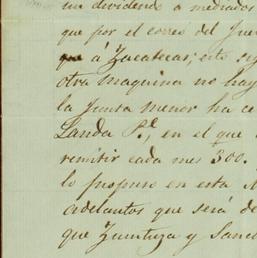 un dividendo a mediados
que por el correo del Jue
que á Zacatecas; esto
otra maquina no hay
la Junta menor ha ce
Landa P.e, en el que
remitir cada mes 300.
lo propuso en esta
adelantos que será de
que Zuntuza y Sanc